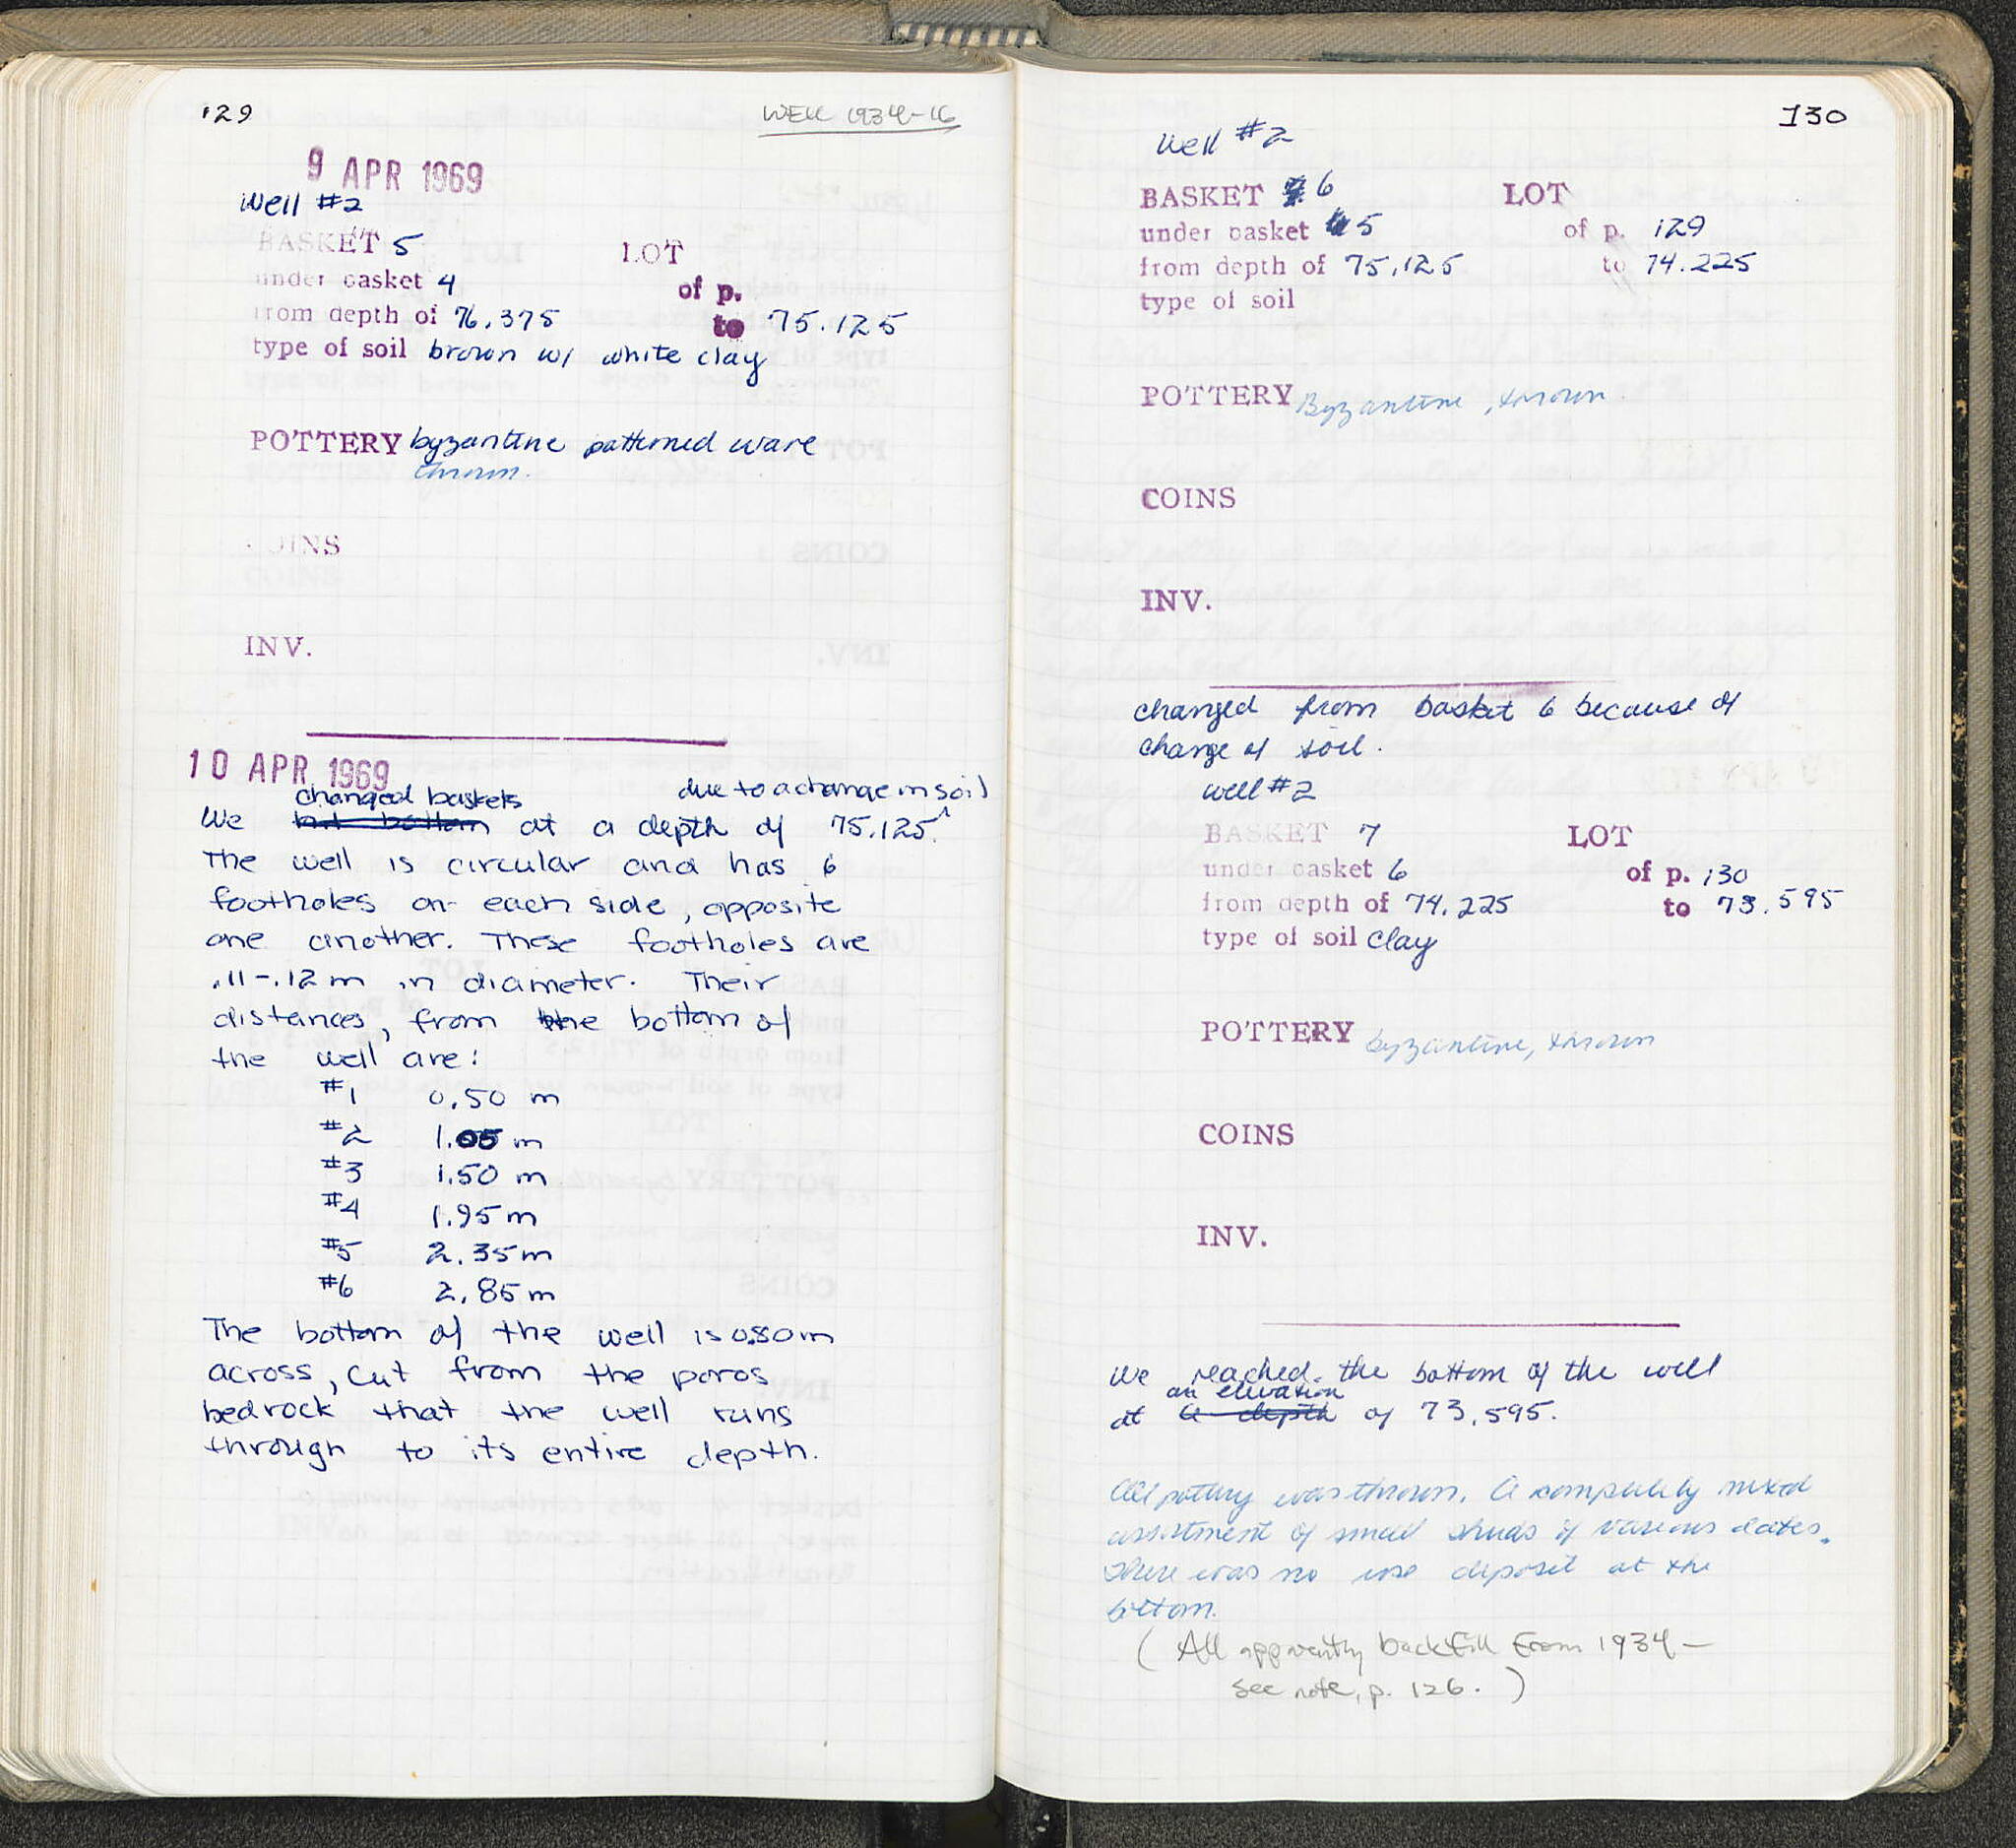 129
WELL 1934-16
9 APR 1969
Well #2
BASKET 5 LOT
under basket 4 of p.
from depth of 76.375 to 75.125
type of soil brown w/ white clay
POTTERY byzantine patterned ware
thrown.
COINS
INV.
10 APR 1969
changed baskets due to a change in soil
We hit bottom at a depth of 75.125.^
The well is circular and has 6
footholes on each side, opposite
one another. These footholes are
.11-.12m in diameter. Their
distances, from the bottom of
the well are:
#1 0.50 m
#2 1.05 m
#3 1.50 m
#4 1.95 m
#5 2.35 m
#6 2.85 m
The bottom of the well is 0.80m
across, cut from the poros
bedrock that the well runs
through to its entire depth.
130
Well #2
BASKET 6 LOT
under basket 5 of p. 129
from depth of 75.125 to 74.225
type of soil
POTTERY Byzantine, thrown.
COINS
INV.
changed from basket 6 because of
change of soil.
well #2
BASKET 7 LOT
under basket 6 of p. 130
from depth of 74.225 to 73.595
type of soil clay
POTTERY byzantine, thrown
COINS
INV.
We reached the bottom of the well
an elevation
at a depth of 73.595.
All pottery was thrown. A completely mixed
assortment of small sherds of various dates.
There was no use deposit at the
bottom.
(All apparently backfill from 1934-
see note, p. 126.)